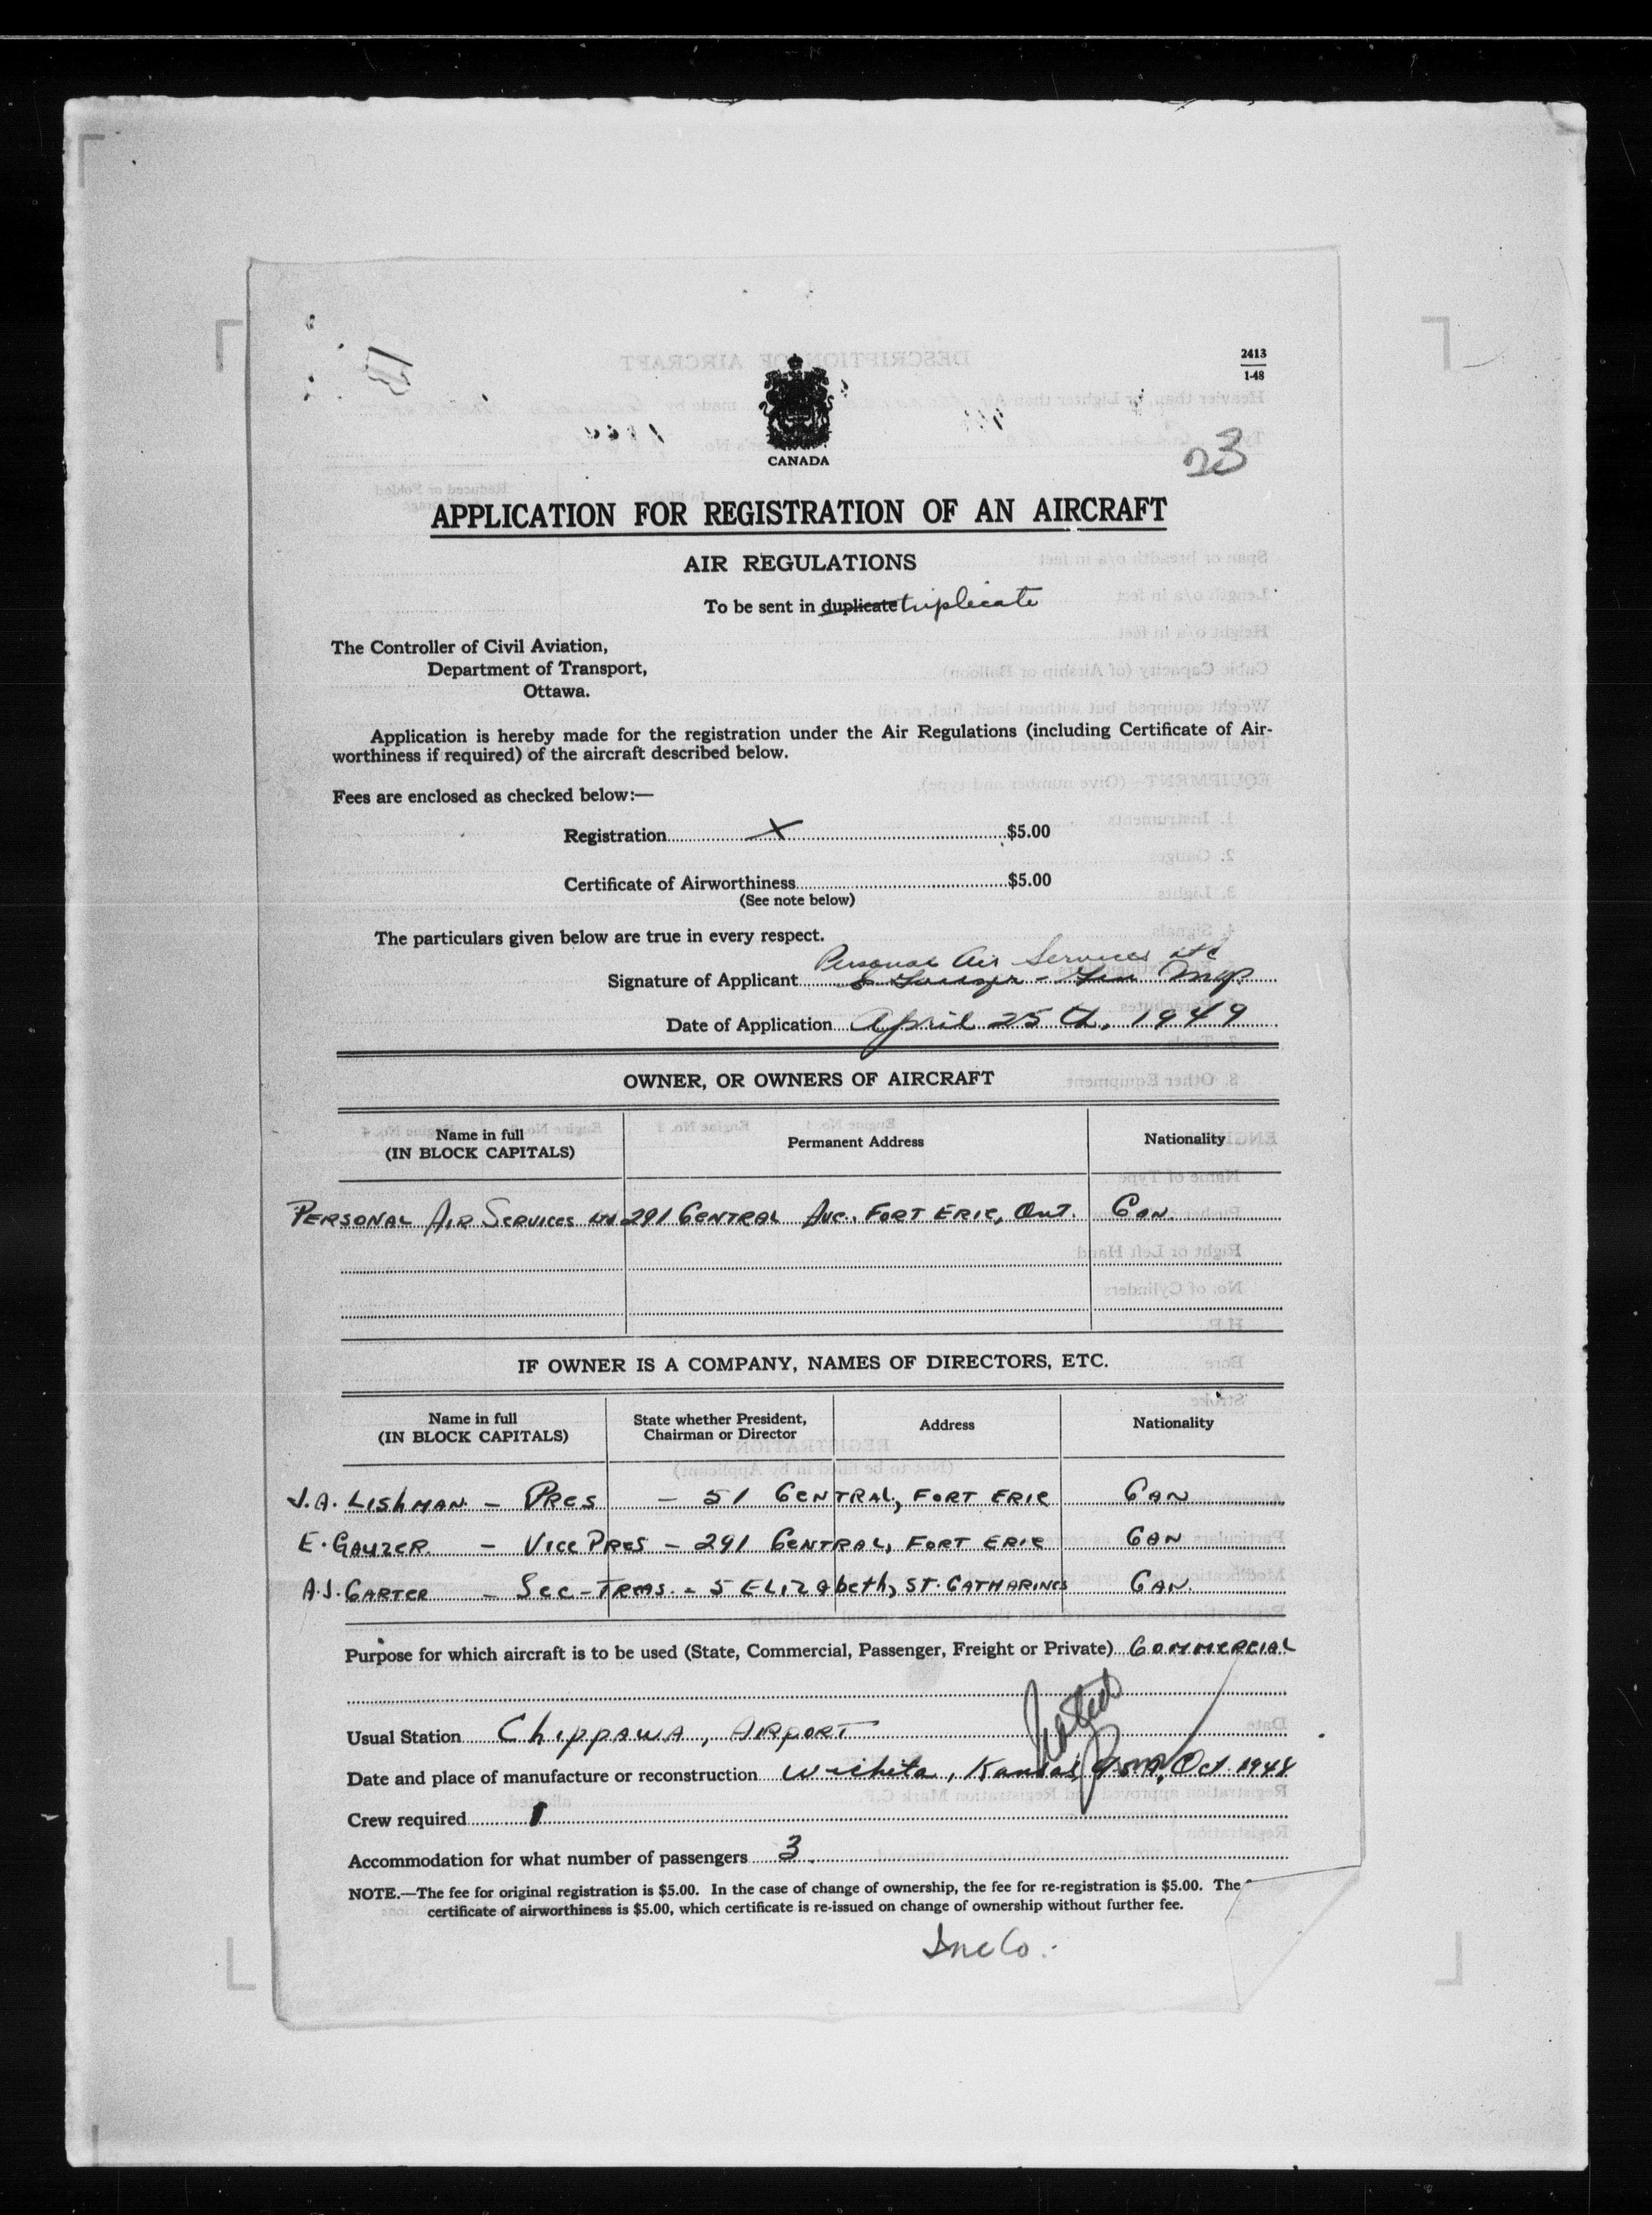 2413
1-48
CANADA
23
APPLICATION FOR REGISTRATION OF AN AIRCRAFT
AIR REGULATIONS
To be sent in duplicate triplicate
The Controller of Civil Aviation,
Department of Transport,
Ottawa.
Application is hereby made for the registration under the Air Regulations (including Certificate of Air-
worthiness if required) of the aircraft described below.
Fees are enclosed as checked below:—
Registration X $5.00
Certificate of Airworthiness $5.00
(See note below)
The particulars given below are true in every respect.
Personal Air Services Ltd
Signature of Applicant Mgr.
Date of Application April 25th, 1949
OWNER, OR OWNERS OF AIRCRAFT
Name in full (IN BLOCK CAPITALS) Permanent Address Nationality
PERSONAL AIR SERVICES Ltd 291 CENTRAL AVE. FORT ERIE, ONT. CAN.
IF OWNER IS A COMPANY, NAMES OF DIRECTORS, ETC.
Name in full (IN BLOCK CAPITALS) State whether President, Chairman or Director Address Nationality
J.A. LISHMAN - PRES - 51 CENTRAL, FORT ERIE CAN
E. GAUZER - VICE PRES - 291 CENTRAL, FORT ERIE CAN
A.J. CARTER - SEC-TREAS. - 5 ELIZABETH, ST. CATHARINES CAN.
Purpose for which aircraft is to be used (State, Commercial, Passenger, Freight or Private) COMMERCIAL
Usual Station Chippawa, AIRPORT
Date and place of manufacture or reconstruction Wichita, Kansas, USA, Oct. 1948
Crew required 1
Accommodation for what number of passengers 3.
NOTE.—The fee for original registration is $5.00. In the case of change of ownership, the fee for re-registration is $5.00. The
certificate of airworthiness is $5.00, which certificate is re-issued on change of ownership without further fee.